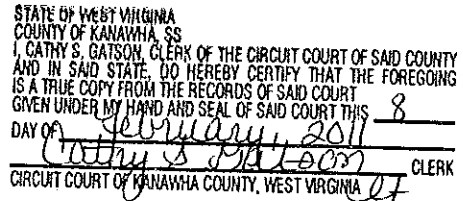 STATE OF WEST VIRGINIA
COUNTY OF KANAWHA, SS
I, CATHY S. GATSON, CLERK OF THE CIRCUIT COURT OF SAID COUNTY
AND IN SAID STATE, DO HEREBY CERTIFY THAT THE FOREGOING
IS A TRUE COPY FROM THE RECORDS OF SAID COURT
GIVEN UNDER MY HAND AND SEAL OF SAID COURT THIS 8
DAY OF February, 2011
Cathy S Gatson CLERK
CIRCUIT COURT OF KANAWHA COUNTY, WEST VIRGINIA